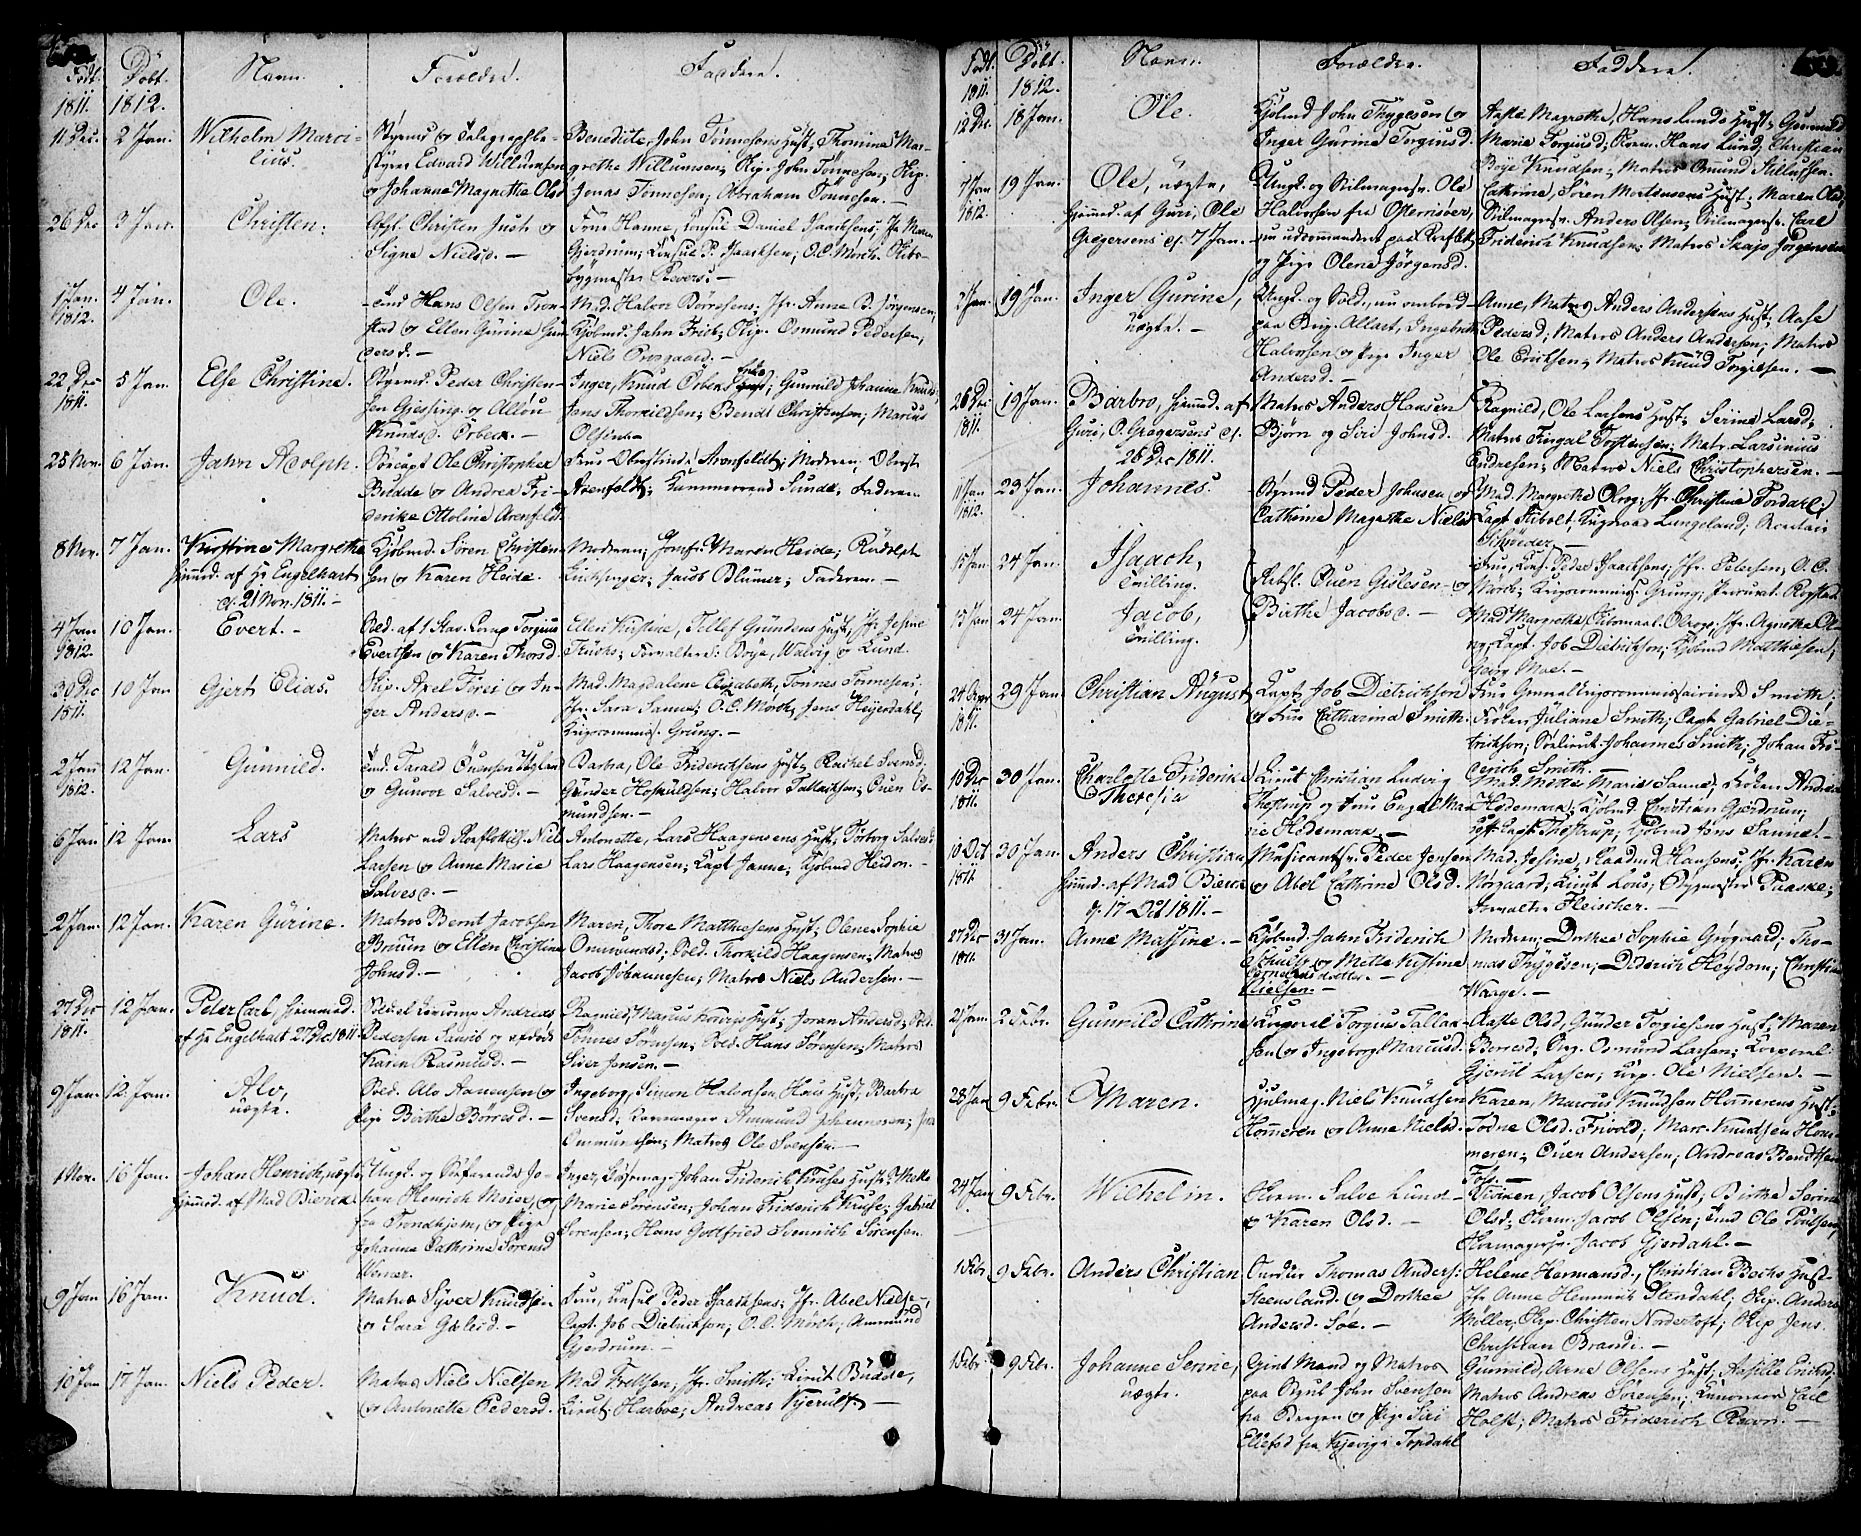 Født. Döbt. Navn. Forældre. Faddere.
1811. 1812.
11 Dec. 2 Jan. Wilhelm Marci-
lius.
Styrmd og Telegraphbe-
styrer Edvard Willumsen
og Johanne Magrethe Olsd
Benedicte, John Tönnesens Hust; Thomine Mar-
grethe Willumsen; Skip. John Tönnesen; Skip.
Jonas Tönnesen; Abraham Tönnesen. —
26 Dec 3 Jan. Christen.
Christen Just og
Signe Nielsd. —
Frue Hanne, Consul Daniel Isaachsens; Jfr Maren
Gjerdrum; Consul P. Isaachsen; O.C. Mørch.
bygmester Brevers. —
1 Jan. 4 Jan. Ole.
1812.
Hans Olsen Tron-
stad og Ellen Gurine Gun-
dersd. —
Mad. Halvor Börresens; Jfr. Anne B. Jörgensen,
Kjöbmd. Jahn Frich; Skip. Osmund Pedersen,
Niels Önsgaard. —
22 Dec 5 Jan. Else Christine.
1811.
Styrmd. Peder Christen-
sen Giessing og
Knudsd. Örbeck. —
Inger, Knud Örbecks Enke; Gunnild Johanne Knudsd,
Jens Thorkildsen; Bendt Christensen; Marcus
Olsen. —
25 Nov. 6 Jan. Jahn Adolph.
Söecapt Ole Christopher
Budde og Andrea Fri-
derike Ottoline Arenfeldt.
Frue Oberstinde Arenfeldt; Moderen; Oberst
Arenfeldt; Kammerraad Sunde; Faderen
8 Nov. 7 Jan. Kirstine Margrethe
hjemmed. af Hr Engelhart
d. 21 Nov. 1811. —
Kjöbmd. Sören Christen-
sen og Karen Heide.
Moderen; Jomfr. Maren Heide; Rudolph
Jacob Blumer; Faderen. —
4 Jan 10 Jan. Evert. —
1812.
Sold. af 1 Stav. Comp Torgius
Evertsen og Karen Thorsd.
Ellen Kirstine, Tellef Gründens Hust; Jfr Josine
Forvaltere: Boye, Walvig og Lund.
30 Dec 10 Jan Gjert Elias.
1811.
Skip. Axel Törris og In-
ger Andersd. —
Mad. Magdalene Elisabeth, Tönnes Tönnesens;
Jfr. Sara Sanne; O.C. Mörch; Jens Heyerdahl;
Krigscommiss. Grung. —
2 Jan 12 Jan. Gunnild.
1812.
Tarald Ouensen
og Gunvor Salvesd. —
Barbra, Ole Friderichsens Hust; Rachel Svensd,
Gunder Hoskuldsen; Halvor Tallaksen; Ouen Os-
mundsen. —
6 Jan 12 Jan. Lars
Matros ved Roeflottill. Niel
Larsen og Anne Marie
Salvesd. —
Antonette, Lars Haagensens Hust; Torborg Salvesd
Lars Haagensen; Capt Janne; Kjöbmd Heidon. —
2 Jan. 12 Jan. Karen Gurine.
Matros Bernt Jacobsen
Bruun og Ellen Christine
Johnsd. —
Maren, Thore Matthiesens Hust; Olene Sophie
Ommundsd; Sold. Thorkild Haagensen; Matros
Jacob Johannesen; Matros Niels Andersen. —
27 Dec 12 Jan. Peter Carl, hjemmed.
1811. af Hr Engelhalt 27 Dec 1811
Andreas
Pedersen og afdöde
Karen Rasmusd. —
Ragnild, Marcus Hust; Joran Andersd; Sold.
Tönnes Sörensen; Sold. Hans Sörensen; Matros
Siver Jensen. —
9 Jan. 12 Jan. Alv,
uægte.
Sold. Alv Aanensen og
Pige Birthe Börresd. —
Ingeborg, Simon Halvorsen Hust; Barbra
Svensd; Aanmund Johannesen;
Ommundsen; Matros Ole Svensen. —
1 Nov. 16 Jan. Johan Henrich, uægte
hjemmed. af Mad Bierck
Ungk. og Söefarende Jo-
han Henrich Meier,
fra Trondhjem, og Pige
Johanne Cathrine Sörensd
Werner.
Inger, Johan Friderich Kruses Hust; Mette
Marie Sörensen; Johan Friderich Kruse; Gabriel
Sörensen; Hans Gotfried Svennich Sörensen.
9 Jan 16 Jan. Knud.
Matros Syver Knudsen
og Sara
Frue, Consul Peder Isaachsens; Jfr. Abel Nielsen,
Capt. Job Dietrichson; O.C. Mörch; Ammund
Gjerdrum. —
10 Jan 17 Jan. Niels Peder.
Matros Niels Nielsen
og Antonette Pedersd.
Mad Frellsen; Jfr. Smith; Lieut Budde,
Lieut Harboe; Andreas Kjerulf. —
Født. Döbt. Navn. Forældre. Faddere.
1811. 1812.
12 Dec. 18 Jan. Ole.
Kjöbmd John Thygesen og
Inger Gurine Torgiusd.
Aase Magrethe, Hans Lunds Hust; Gunnild
Marie Torgiusd; Hans Lund; Christian
Boye Knudsen; Matros Omund
7 Jan 19 Jan. Ole, uægte,
1812. hjemmed. af Guri, Ole
Gregersens d. 7 Jan. —
Ungk. og Seilmagersv. Ole
Halvorsen fra Österrisöer,
nu udcommanderet paa
og Pige Olene Jörgensd.
Cathrine, Sören Mortensens Hust; Maren Olsd;
Seilmagersv. Anders Olsen; Seilmagersv. Carl
Friderich Knudsen; Matros Jörgensen
7 Jan. 19 Jan. Inger Gurine,
uægte. —
Ungk. og Sold. nu ombord
paa Brig. Allart, Ingebreth
Halvorsen og Pige Inger
Andersd. —
Anne, Matros Anders Andersens Hust; Aase
Pedersd; Matros Anders Andersen; Matros
Ole Erichsen; Matros Knud Torgiesen. —
26 Dec 19 Jan. Barbro, hjemmed. af
1811. Guri, O. Gregersens d.
26 Dec 1811.
Matros Anders Hansen
Björn og Siri Johnsd.
Ragnild, Ole Larsens Hust; Serine Larsd;
Matros Tingal Torstensen; Matr. Larsinius
Endresen; Matros Niels Christophersen. —
11 Jan 23 Jan. Johannes.
1812.
Styrmd Peder Johnsen og
Cathrine Magrethe Nielsd
Mad. Margrethe Olrog; Jfr Christine Tordahl;
Capt Stibolt; Krigsraad Lungeland;
Schröder. —
15 Jan 24 Jan. Isaach,
Tvilling.
Arbsf. Ouen Gislesen og
Birthe Jacobsd. —
Frue, Cons. Peder Isaachsens; Jfr. Petersen; O.C.
Mörch; Krigscommiss. Grung; Procurat. Rogstad
15 Jan 24 Jan. Jacob,
Tvilling.
Mad Margrethe Olrogs; Jfr. Agnethe Ol-
rog; Capt. Job Dietrichson; Kjöbmd Matthiesen;
Georg Moe. —
24 Sept 29 Jan. Christian August
1811.
Capt. Job Dietrichson
og Frue Catharina Smith.
Frue Generalkrigscommissairinde Smith;
Fröken Juliane Smith; Capt Gabriel Die-
trichson; Söelieut. Johannes Smith; Johan Fri-
derich Smith. —
10 Dec 30 Jan. Charlotte Friderice
1811. Theresia
Lieut Christian Ludvig
Thestrup og Frue Engel Ma-
rie Hedemark. —
Mad. Mette Marie Sanne; Fröken Andrea
Hedemark; Kjöbmd Christian Gjerdrum;
Capt Thestrup; Kjöbmd Jens Sanne. —
10 Oct 30 Jan. Anders Christian
1811. hjemmed. af Mad Bierck
d. 17 Oct 1811. —
Musicantsv. Peder Jensen
og Abel Cathrine Olsd.
Mad. Josine, Raadmd Hansens; Jfr. Karen
Nörgaard; Lieut Lous; Bygmester Paaske;
Forvalter Fleischer. —
27 Dec 31 Jan. Anne Massine. —
1811.
Kjöbmd. Jahn Friderich
Schultz og Mette Kirstine
Corneliusdatter
Nielsen. —
Moderen; Dorthee Sophie Grögaard; Tho-
mas Thygesen; Diderich Heydorn; Christian
Waage. —
21 Jan. 2 Febr. Gunnild Cathrine
Corporal Torgius Tallak-
sen og Ingeborg Marcusd.
Aaste Olsd, Gunder Torgiesens Hust; Maren
Berresd; Osmund Larsen; Corporal
Gjeruld Larsen; Corp. Ole Nielsen. —
28 Jan 9 Febr. Maren.
Hjulmag. Niels Knudsen
Homeren og Anne Nielsd.
Karen, Marcus Knudsen Homerens Hust;
Todne Olsd. Frivold; Marc. Knudsen Hom-
meren; Ouen Andersen; Andreas Bendtsen
Foss. —
24 Jan 9 Febr. Wilhelm.
Salve Lund
og Karen Olsd. —
Jacob Olsens Hust; Birthe Serine
Olsd; Jacob Olsen; Ole Poulsen,
Jacob Gjerdahl. —
1 Febr. 9 Febr. Anders Christian
Thomas Anders:
Steensland og Dorthee
Andersd. Soe. —
Helene Hermansd., Christian Bechs Hust;
Jfr Anne Henrich Stendahl; Skip. Anders
Möller; Skip. Christen Nordertoft; Skip Jens
Christian Brandi. —
1 Febr. 9 Febr. Johanne Serine,
uægte.
Gift Mand og Matros
paa John Svensen
fra Bergen og Pige Siri
Ellefsd fra Kjevig i Topdahl
Gunnild, Arne Olsens Hust; Aasille Ericksd;
Matros Andreas Sörensen; Carl
Holst; Matros Friderich Ravn. —